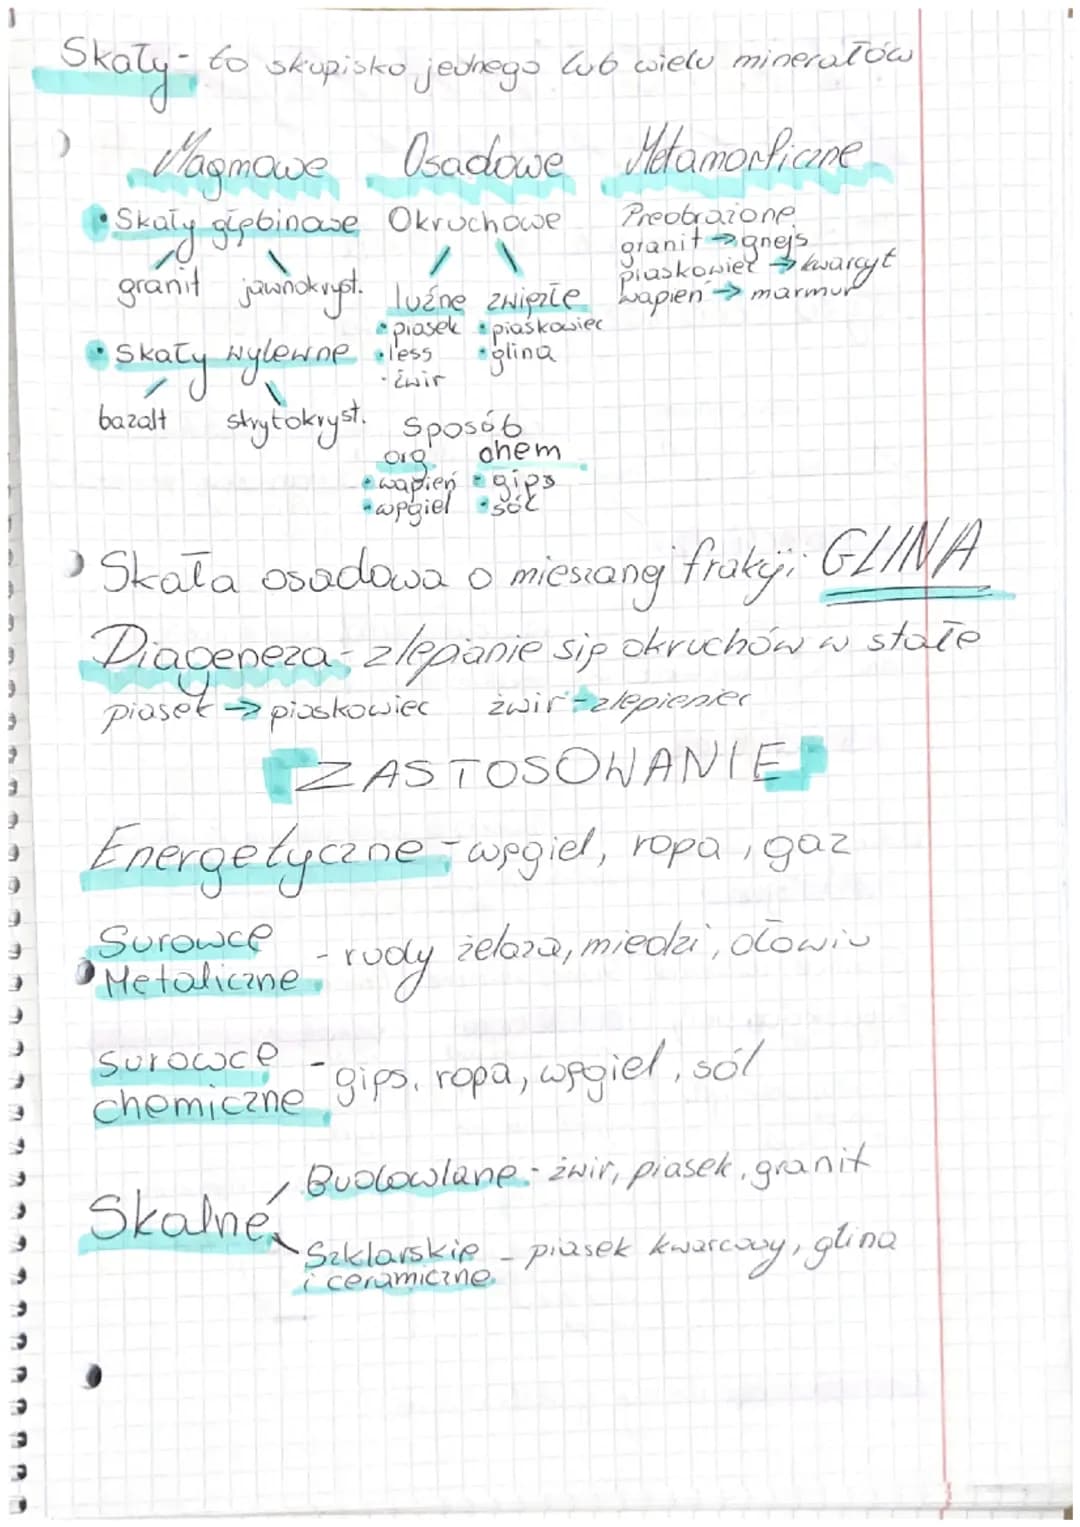 Skały - to skupisko jednego lub wielu minerałów
Magmowe Osadowe Metamorficzne
• Skały głębinowe Okruchowe Preobrażone
granit jawnokryst. luźne zwięzłe granit → gnejs
• piasek • piaskowiec piaskowiec → kwarcyt
• less • glina wapień → marmur
• żwir
• Skały wylewne
bazalt skrytokryst. Sposób
org. chem
• wapień • gips
• węgiel • sól
Skała osadowa o mieszanej frakcji: GLINA
Diageneza - zlepianie się okruchów w stałe
piasek → piaskowiec żwir - zlepieniec
ZASTOSOWANIE
Energetyczne - węgiel, ropa, gaz
Surowce
Metaliczne - rudy żelaza, miedzi, ołowiu
Surowce
chemiczne - gips, ropa, węgiel, sól
Skalne
Budowlane - żwir, piasek, granit
Szklarskie
i ceramiczne - piasek kwarcowy, glina